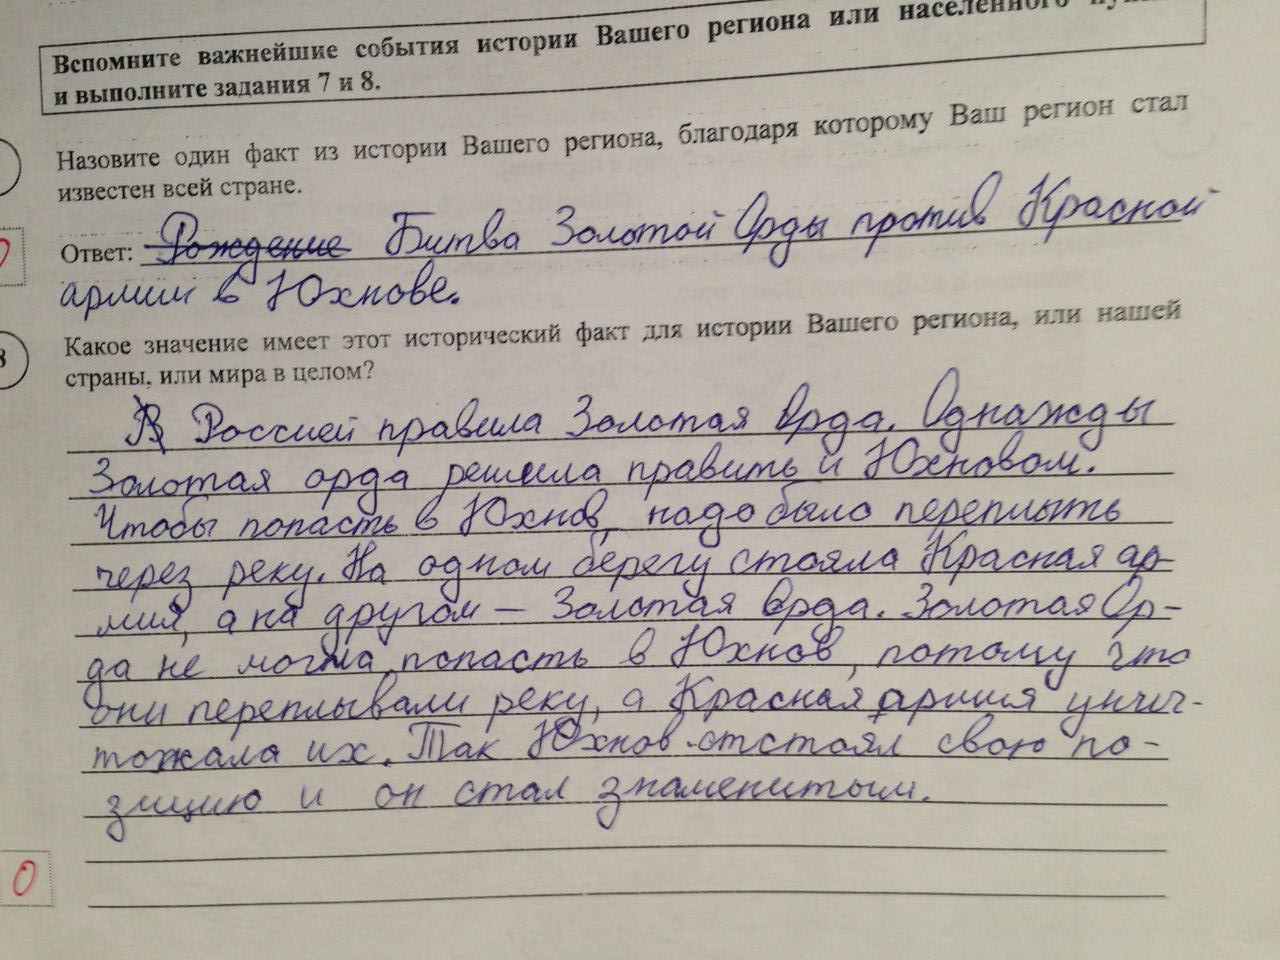 Вспомните важнейшие события истории Вашего региона или населенного
и выполните задания 7 и 8.
Назовите один факт из истории Вашего региона, благодаря которому Ваш регион стал
известен всей стране.
Ответ: Рождение Битва Золотой Орды против Красной
армии в Юхнове.
8
Какое значение имеет этот исторический факт для истории Вашего региона, или нашей
страны, или мира в целом?
В Россией правила Золотая Орда. Однажды
Золотая орда решила править и Юхновом.
Чтобы попасть в Юхнов, надо было переплыть
через реку. На одном берегу стояла Красная ар-
мия, а на другом – Золотая Орда. Золотая Ор-
да не могла попасть в Юхнов, потому что
они переплывали реку, а Красная армия унич-
тожала их. Так Юхнов отстоял свою по-
зицию и он стал знаменитым.
0